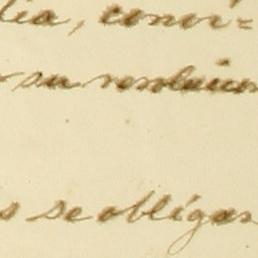 dia, convi=
su resolucion
s se obligan